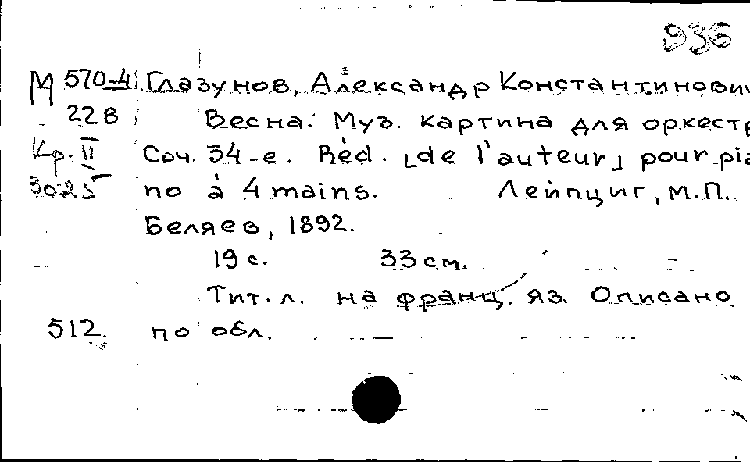 936
М 570-4 Глазунов, Александр Константинович
228 Весна. Муз. картина для оркестр
Кр. II Соч. 34-е. Réd. [de l'auteur] pour pia
3025 no à 4 mains. Лейпциг, М.П.
Беляев, 1892.
19 с. 33 см.
Тит. л. на франц. яз. Описано
512 по обл.